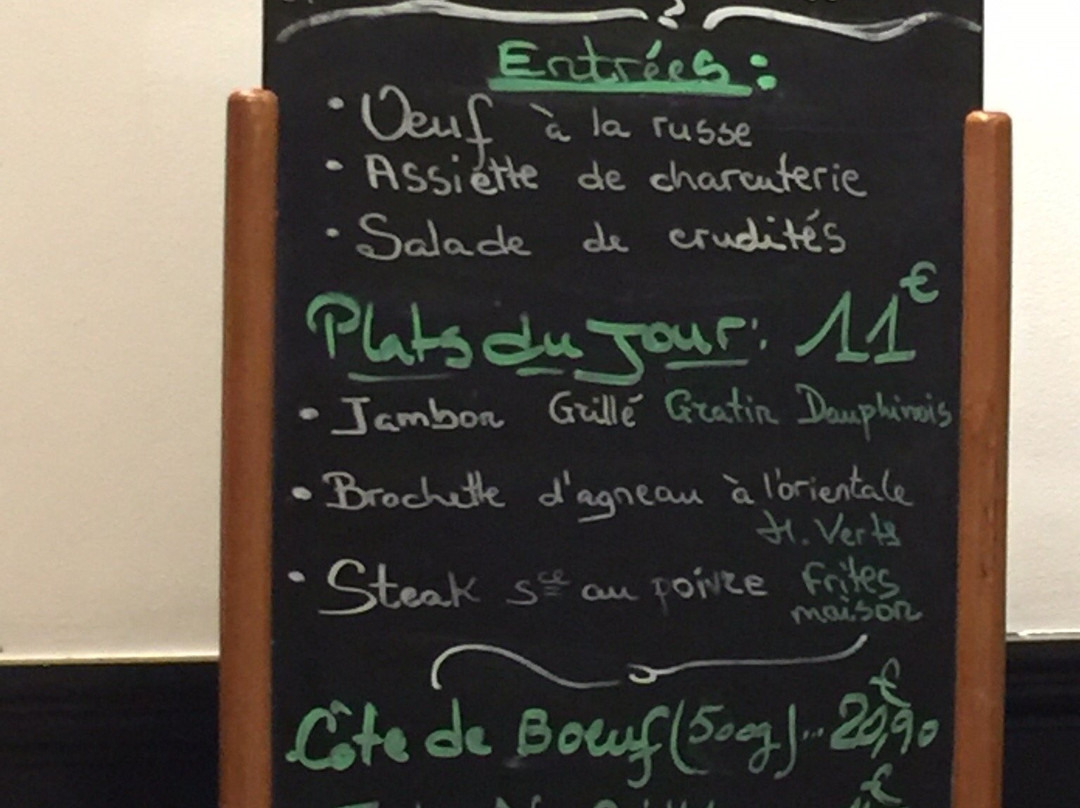 Entrées :
• Oeuf à la russe
• Assiette de charcuterie
• Salade de crudités
Plats du Jour : 11€
• Jambon Grillé Gratin Dauphinois
• Brochette d'agneau à l'orientale
H. Verts
• Steak sce au poivre Frites
maison
Côte de Boeuf (500g)... 20,90€